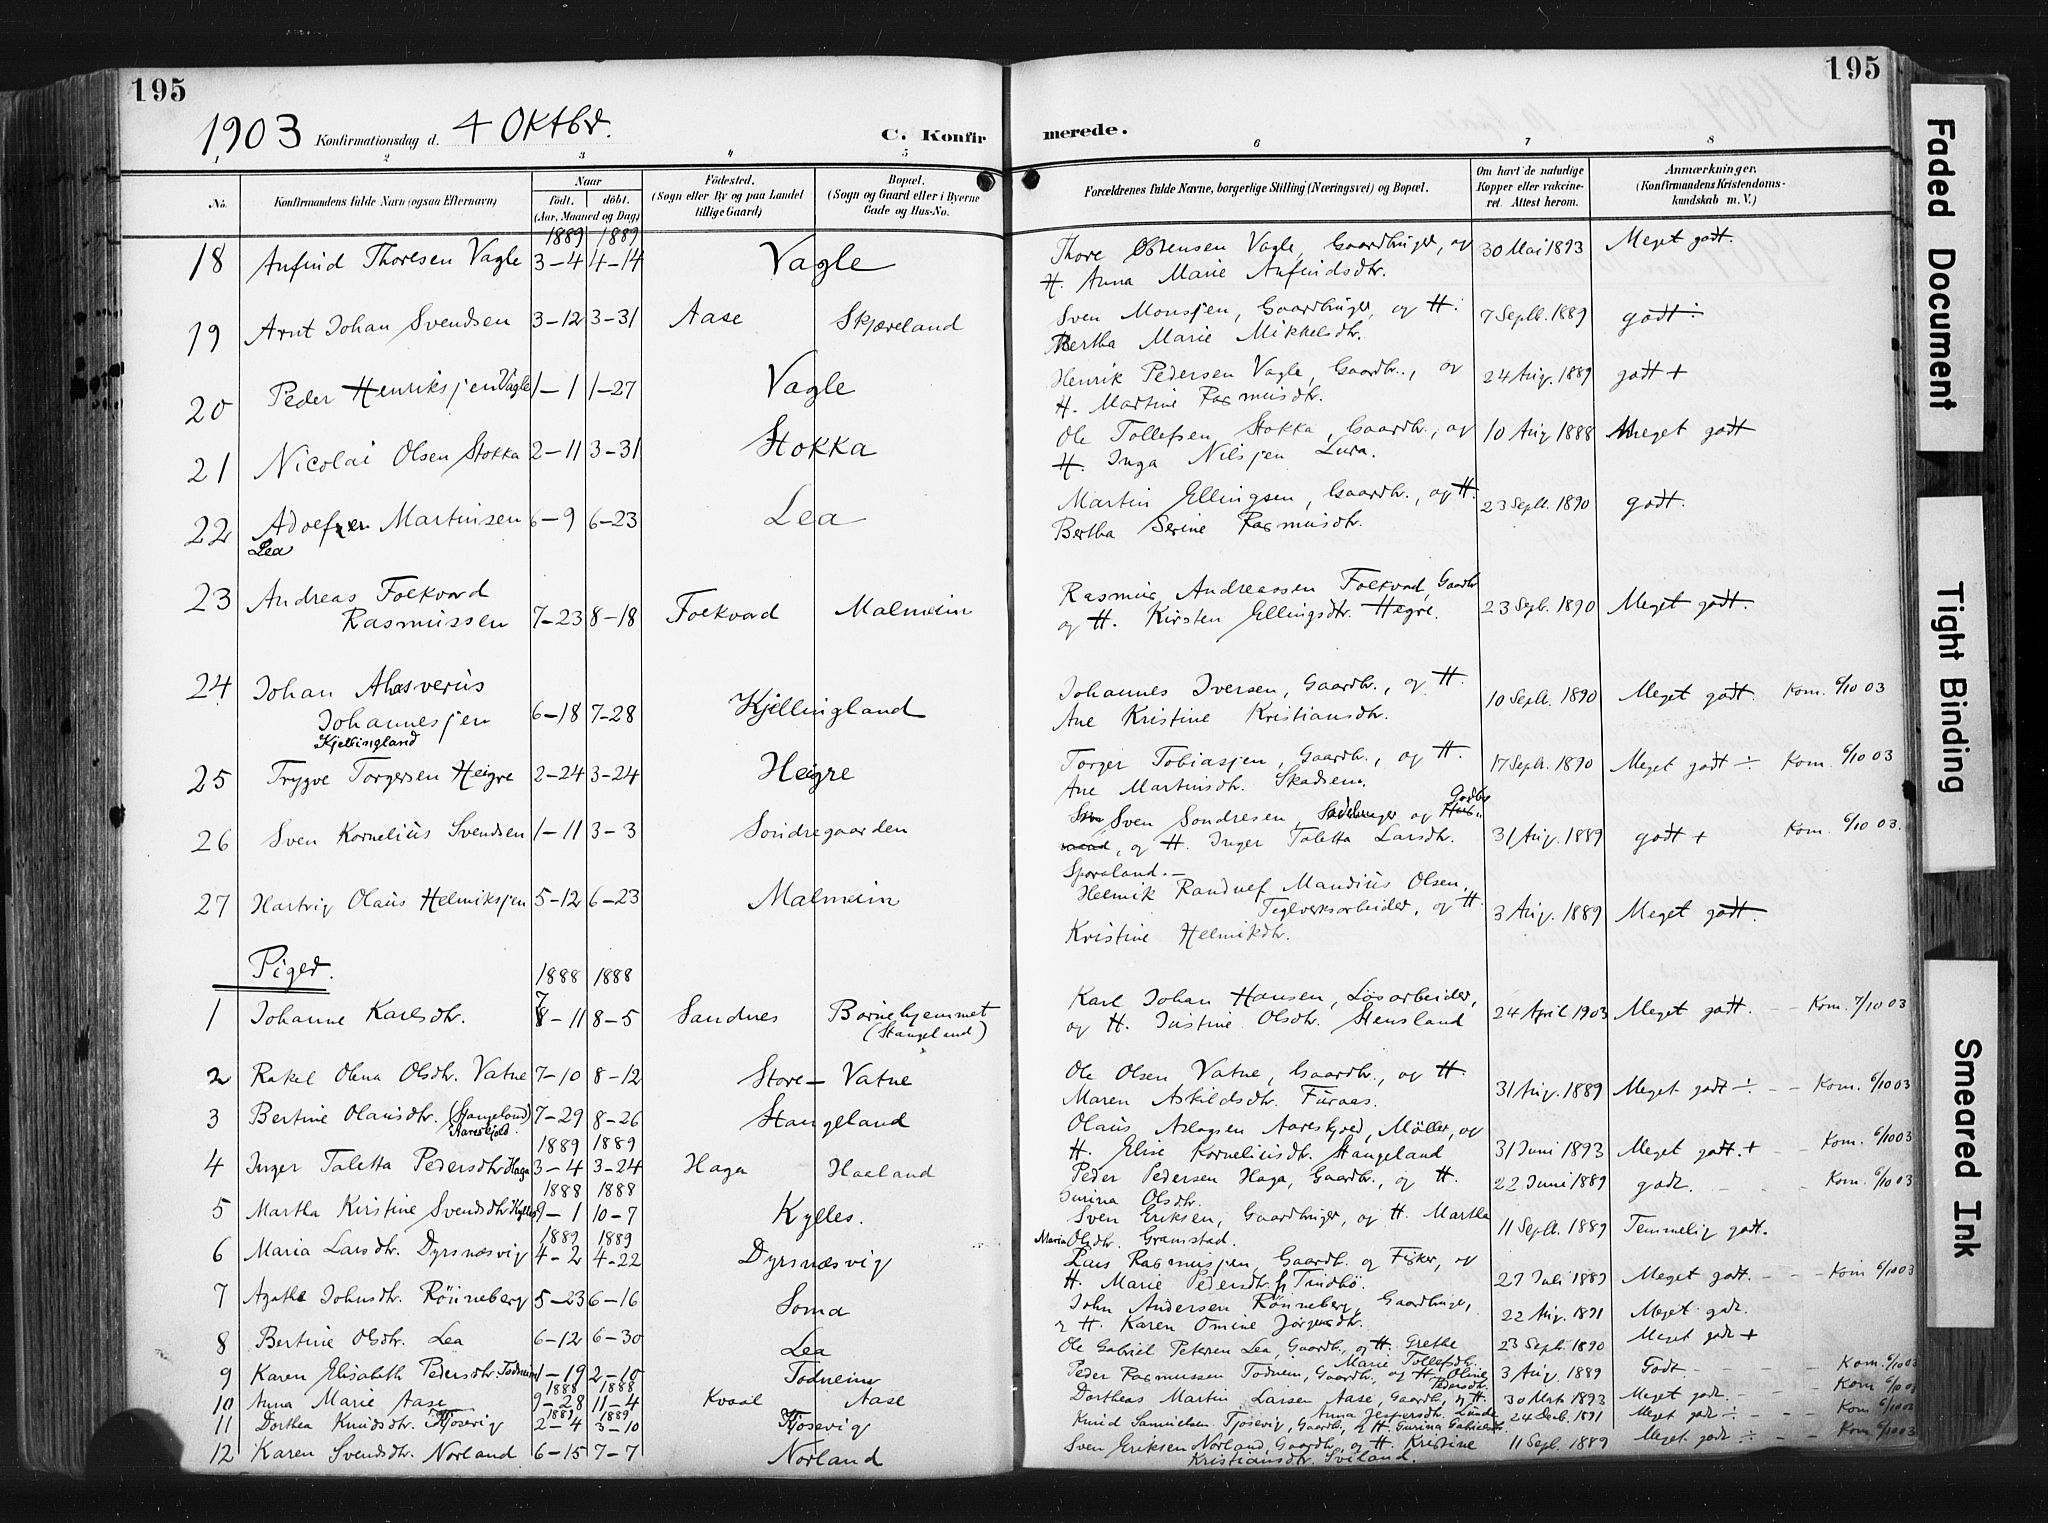 195
195
1903 Konfirmationsdag d. 4 Oktbr. C. Konfirmerede.
2 3 4 5 6 7 8
No. Konfirmandens fulde Navn (ogsaa Efternavn) Naar Født. døbt. (Aar, Maaned og Dag) Fødested. (Sogn eller By og paa Landet tillige Gaard) Bopæl. (Sogn og Gaard eller i Byerne Gade og Hus-No. Forældrenes fulde Navne, borgerlige Stilling (Næringsvei) og Bopæl. Om havt de naturlige Kopper eller vakcineret. Attest herom. Anmærkninger. (Konfirmandens Kristendomskundskab m. V.)
1889 1889
18 Anfind Thoresen Vagle 3-4 4-14 Vagle Thore Vagle, Gaardbruger, og 30 Mai 1893 Meget godt.
H. Anna Marie Anfindsdtr.
19 Arnt Johan Svendsen 3-12 3-31 Aase Skjæreland Sven Monsjen, Gaardbruger, og H. 7 Septb. 1889 godt ÷
Bertha Marie Mikkelsdtr.
20 Peder Henriksjen Vagle 1-1 1-27 Vagle Henrik Pedersen Vagle, Gaardbr., og 24 Aug. 1889 godt +
H. Martine Rasmusdtr.
21 Nicolai Olsen Stokka 2-11 3-31 Stokka Ole Tollefsen Stokka, Gaardbr., og 10 Aug 1888 Meget godt
H. Inga Nilsjen Lura.
22 Martinsen 6-9 6-23 Lea Martin Ellingsen, Gaardbr., og H. 23 Septb. 1890 godt.
Lea Bertha Serine Rasmusdtr.
23 Andreas Folkvord Rasmus Andreassen Folkvod, Gaardbr
Rasmussen 7-23 8-18 Folkvord Malmeim og H. Kirsten Ellingsdtr. Hegre. 23 Sepb. 1890 Meget godt.
24 Johan Ahasverus Johannes Iversen, Gaardbr., og H.
Johannesjen 6-18 7-28 Kjellingland Ane Kristine Kristiansdtr. 10 Septb. 1890 Meget godt. Kom. 6/10 03
Kjellingland
25 Trygve Torgersen Heigre 2-24 3-24 Heigre Torger Tobiasjen, Gaardbr., og H. 17 Septb. 1890 Meget godt ÷ Kom. 6/10 03
Ane Martinsdtr. Skadsem.
26 Sven Kornelius Svendsen 1-11 3-3 Søndregaarden Sven Søndresen, og
, og H. Inger Taletta Larsdtr. 31 Aug. 1889 godt + Kom. 6/10 03.
Sporaland. –
27 Hartvig Olaus Helmiksjen 5-12 6-23 Malmeim Helmik Randulf Mandius Olsen,
Teglverksarbeider, og H. 3 Aug. 1889 Meget godt.
Kristine Helmikdtr.
Piger.
1888 1888
1 Johanne Karlsdtr. 7-11 8-5 Sandnes Børnehjemmet (Stangeland) Karl Johan Hansen, Løsarbeider, 24 April 1903 Meget godt. Kom. 7/10 03
og H. Justine Olsdtr. Stensland
2 Rakel Olena Olsdtr. Vatne 7-10 8-12 Store-Vatne Ole Olsen Vatne, Gaardbr., og H. 31 Aug. 1889 Meget godt ÷ Kom. 6/10 03
Maren Askildsdtr. Furaas.
3 Bertine Olausdtr. (Stangeland) Aareskjold. 7-29 8-26 Stangeland Olaus Aslagsen Aareskjold, Møller, og 31 Juni 1893 Meget godt. + Kom. 6/10 03
1889 1889 H. Elise Korneliusdtr. Stangeland
4 Inger Taletta Pedersdtr Haga 3-4 3-24 Haga Hæland Peder Pedersen Haga, Gaardbr., og H. 22 Juni 1889 godt. Kom. 6/10 03
1888 1888 Jurina Olsdtr.
5 Martha Kirstine Svendsdtr Kylles 9-1 10-7 Kylles. Sven Eriksen, Gaardbruger, og H. Martha 11 Septb. 1889 Temmelig godt.
1889 1889 Maria Olsdtr. Gramstad.
6 Maria Larsdtr. Dyrsnæsvig 4-2 4-22 Dyrsnæsvig Lars Rasmusjen, Gaardb. og Fisker, og 27 Juli 1889 Meget godt. Kom 6/10 03
H. Marie Pedersdtr. fr Tindbø.
7 Agathe Johnsdtr. Rønneberg 5-23 6-16 Soma John Andersen Rønneberg, Gaardbruger, 22 Aug. 1891 Meget godt.
og H. Karen Omine Jørgensdtr.
8 Bertine Olsdtr. Lea 6-12 6-30 Lea Ole Gabriel Petersen Lea, Gaardbr., og H. Grethe Marie Tollefsdtr. 23 Septb. 1890 Meget godt +
9 Karen Elisabeth Pedersdtr. Todneim 1-19 2-10 Todneim Peder Rasmussen Todneim, Gaardbr., og H. Oline Pedersdtr. 3 Aug. 1889 Godt Kom. 6/10 03
1888 1888
10 Anna Marie Aase 9-28 11-4 Kvaal Aase Dortheas Martin Larsen Aase, Gaardbr., og H. Anna Jespersdtr. Lunde 30 Mart. 1893 Meget godt. Kom 6/10 03
1889 1889
11 Dorthea Knudsdtr. Tjosevig 2-4 3-10 Tjosevig Knud Samuelsen Tjosevig, Gaardb., og H. Gurina 24 Decb. 1891 Meget godt ÷ Kom 6/10 03
12 Karen Svendsdtr. Norland 6-15 7-7 Norland Sven Eriksen Norland, Gaardb., og H. Kristine 11 Sepb. 1889 Meget godt ÷ Kom 6/10 03
Kristiansdtr. Sviland.
Faded Document
Tight Binding
Smeared Ink